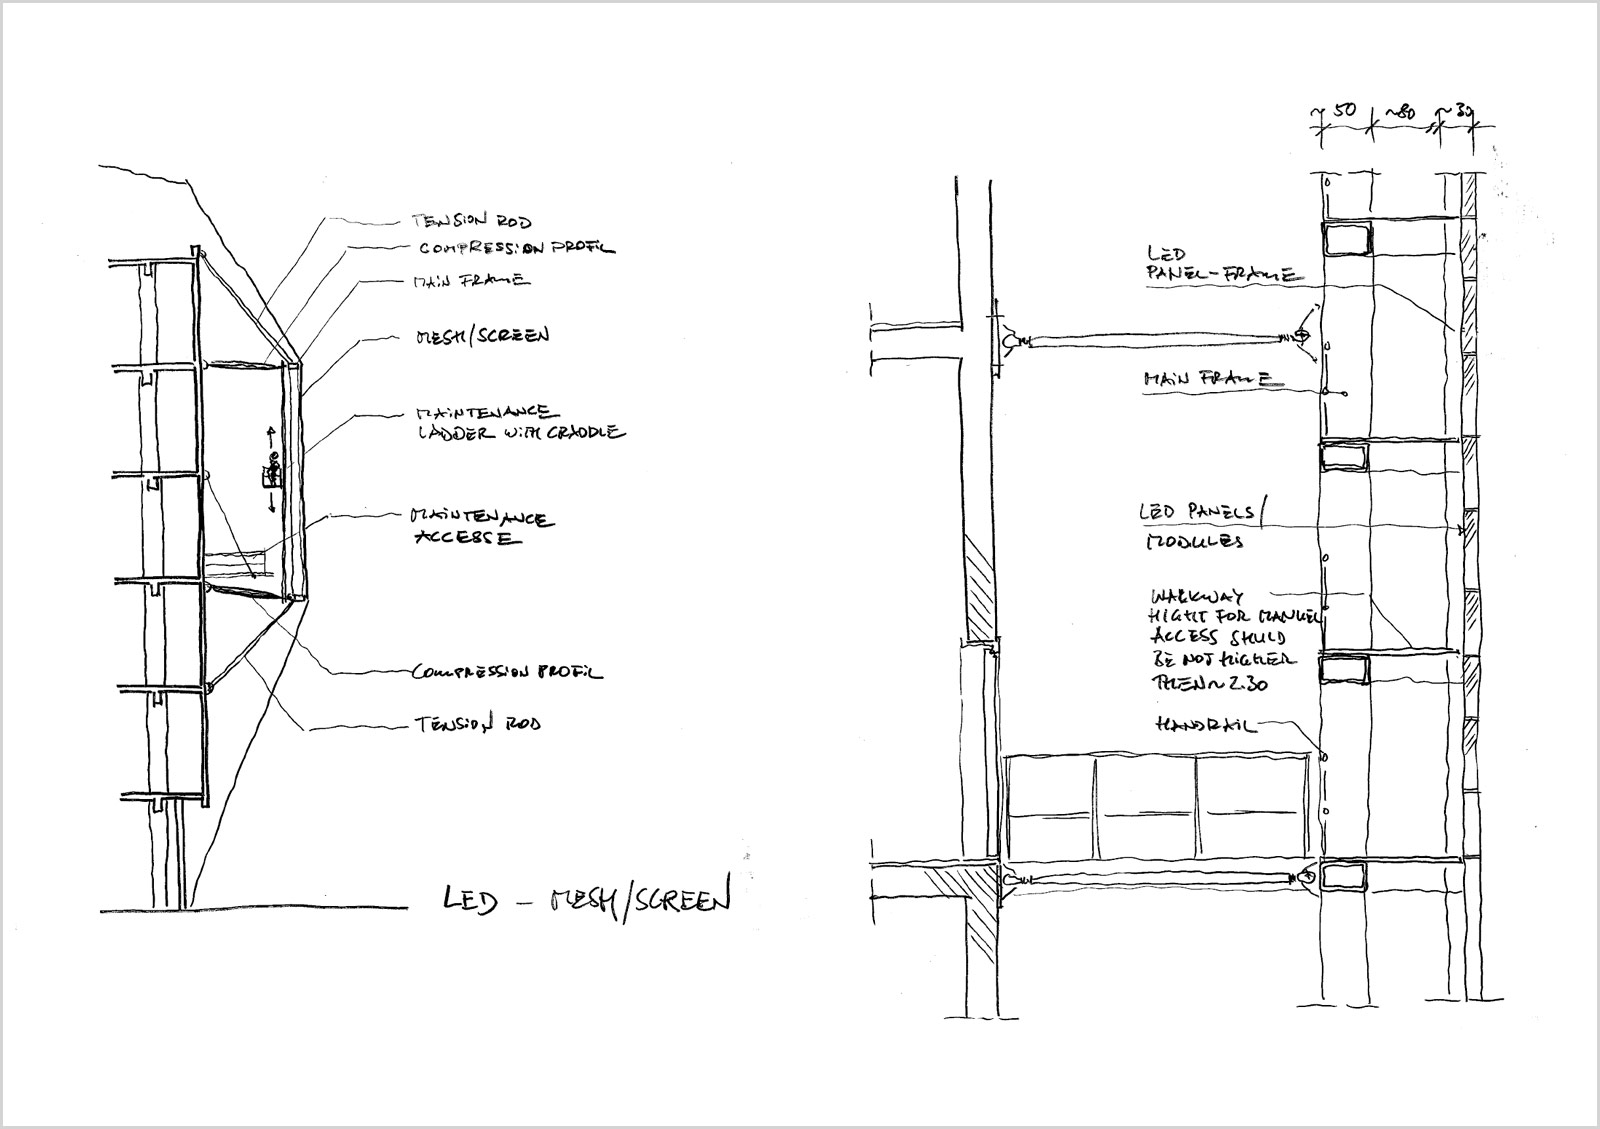 TENSION ROD
COMPRESSION PROFIL
MAIN FRAME
MESH/SCREEN
MAINTENANCE
LADDER WITH CRADDLE
MAINTENANCE
ACCESSE
COMPRESSION PROFIL
TENSION ROD
LED – MESH/SCREEN
~ 50 ~80 ~ 30
LED
PANEL-FRAME
MAIN FRAME
LED PANELS/
MODULES
WALKWAY
HIGHT FOR MANUEL
ACCESS SHULD
BE NOT HIGHER
THEN ~ 2.30
HANDRAIL